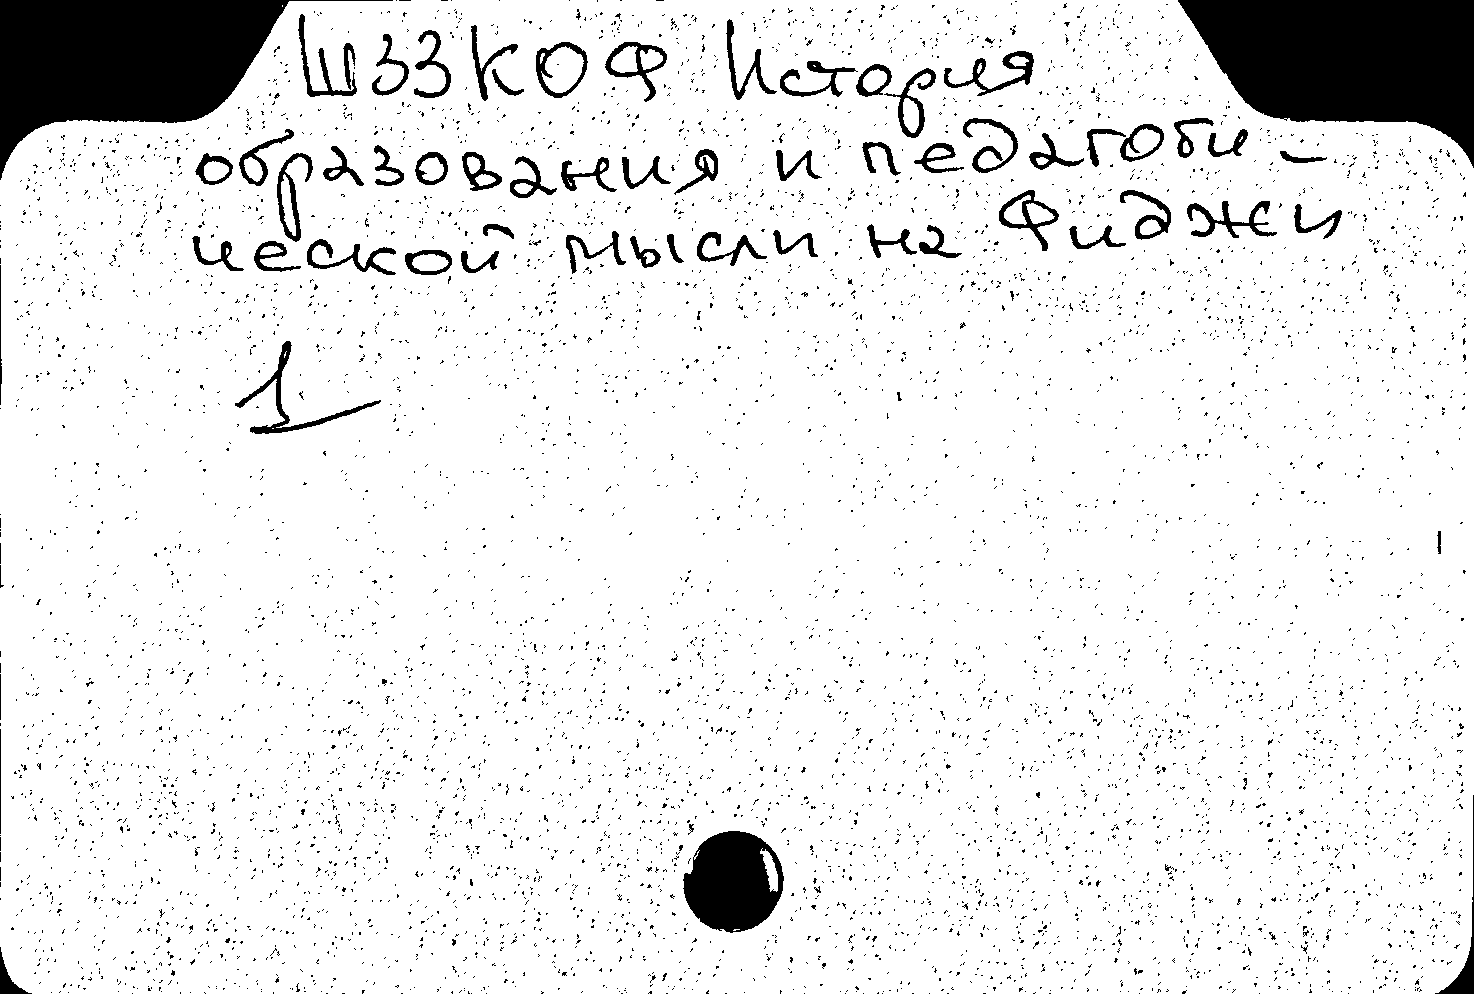 Ш33КОФ История
образования и педагоги-
ческой мысли на Фиджи
1